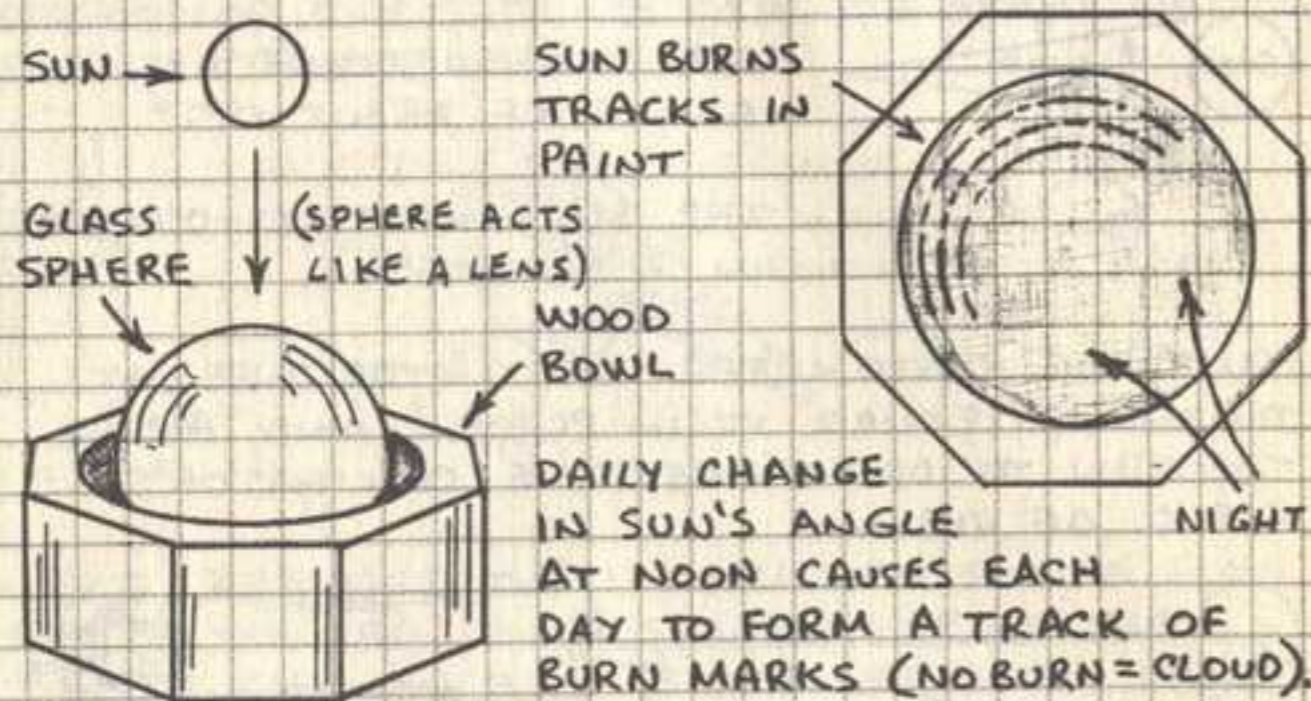 SUN
GLASS
SPHERE
(SPHERE ACTS
LIKE A LENS)
WOOD
BOWL
SUN BURNS
TRACKS IN
PAINT
NIGHT
DAILY CHANGE
IN SUN'S ANGLE
AT NOON CAUSES EACH
DAY TO FORM A TRACK OF
BURN MARKS (NO BURN = CLOUD).